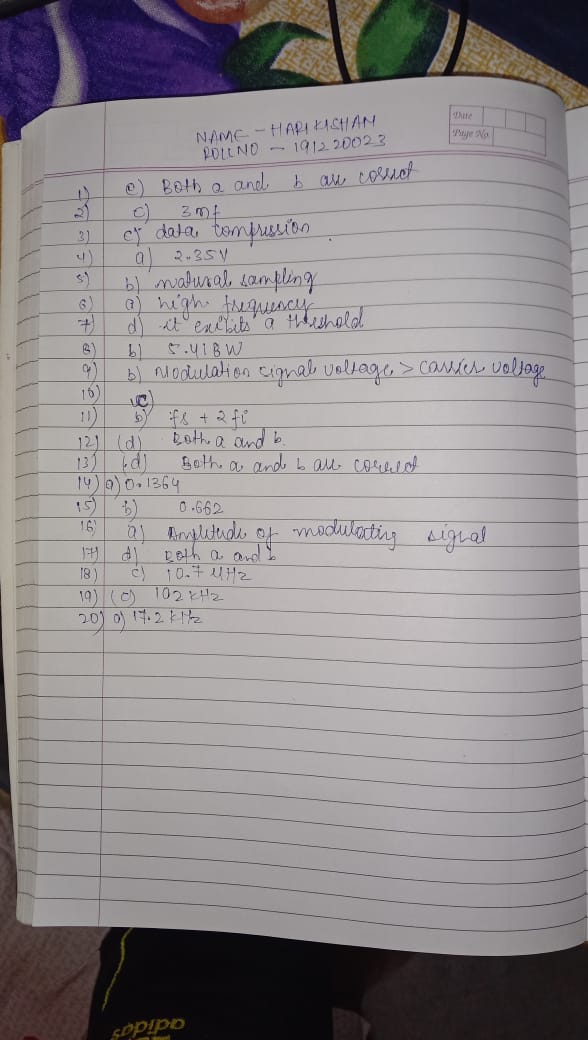 Date
Page No.
NAME - HARI KISHAN
ROLL NO - 191220023
1) e) Both a and b are correct
2) c) 3mf
3) c) data compression
4) a) 2.35V
5) b) natural sampling
6) a) high frequency
7) d) it exibits a threshold
8) b) 5.41BW
9) b) Modulation signal voltage > carrier voltage
10) c)
11) b) fs + 2fi
12) (d) Both a and b.
13) (d) Both a and b are correct
14) a) 0.1364
15) b) 0.662
16) a) Amplitude of modulating signal
17) d) Both a and b
18) c) 10.7 MHz
19) (c) 102 kHz
20) a) 17.2 kHz
adidas